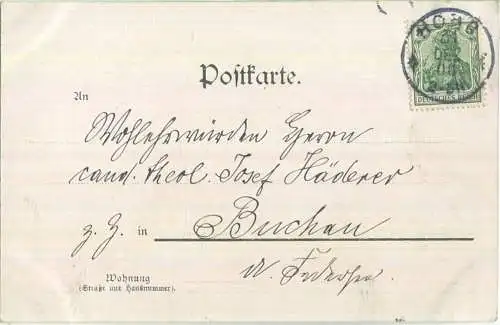 HORB
DEUTSCHES REICH
Postkarte.
An
Wohlehrwürden Herrn
cand. theol. Josef Häderer
z. Z. in Buchau
a. Federsee
Wohnung
(Straße und Hausnummer).